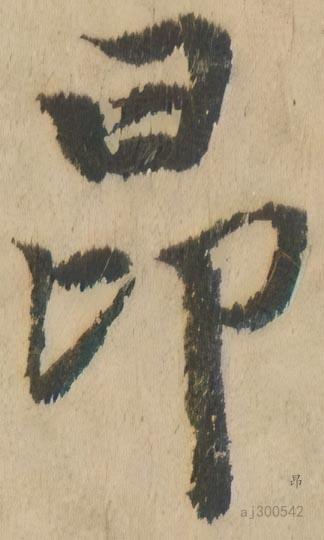 昂
昂
aj300542